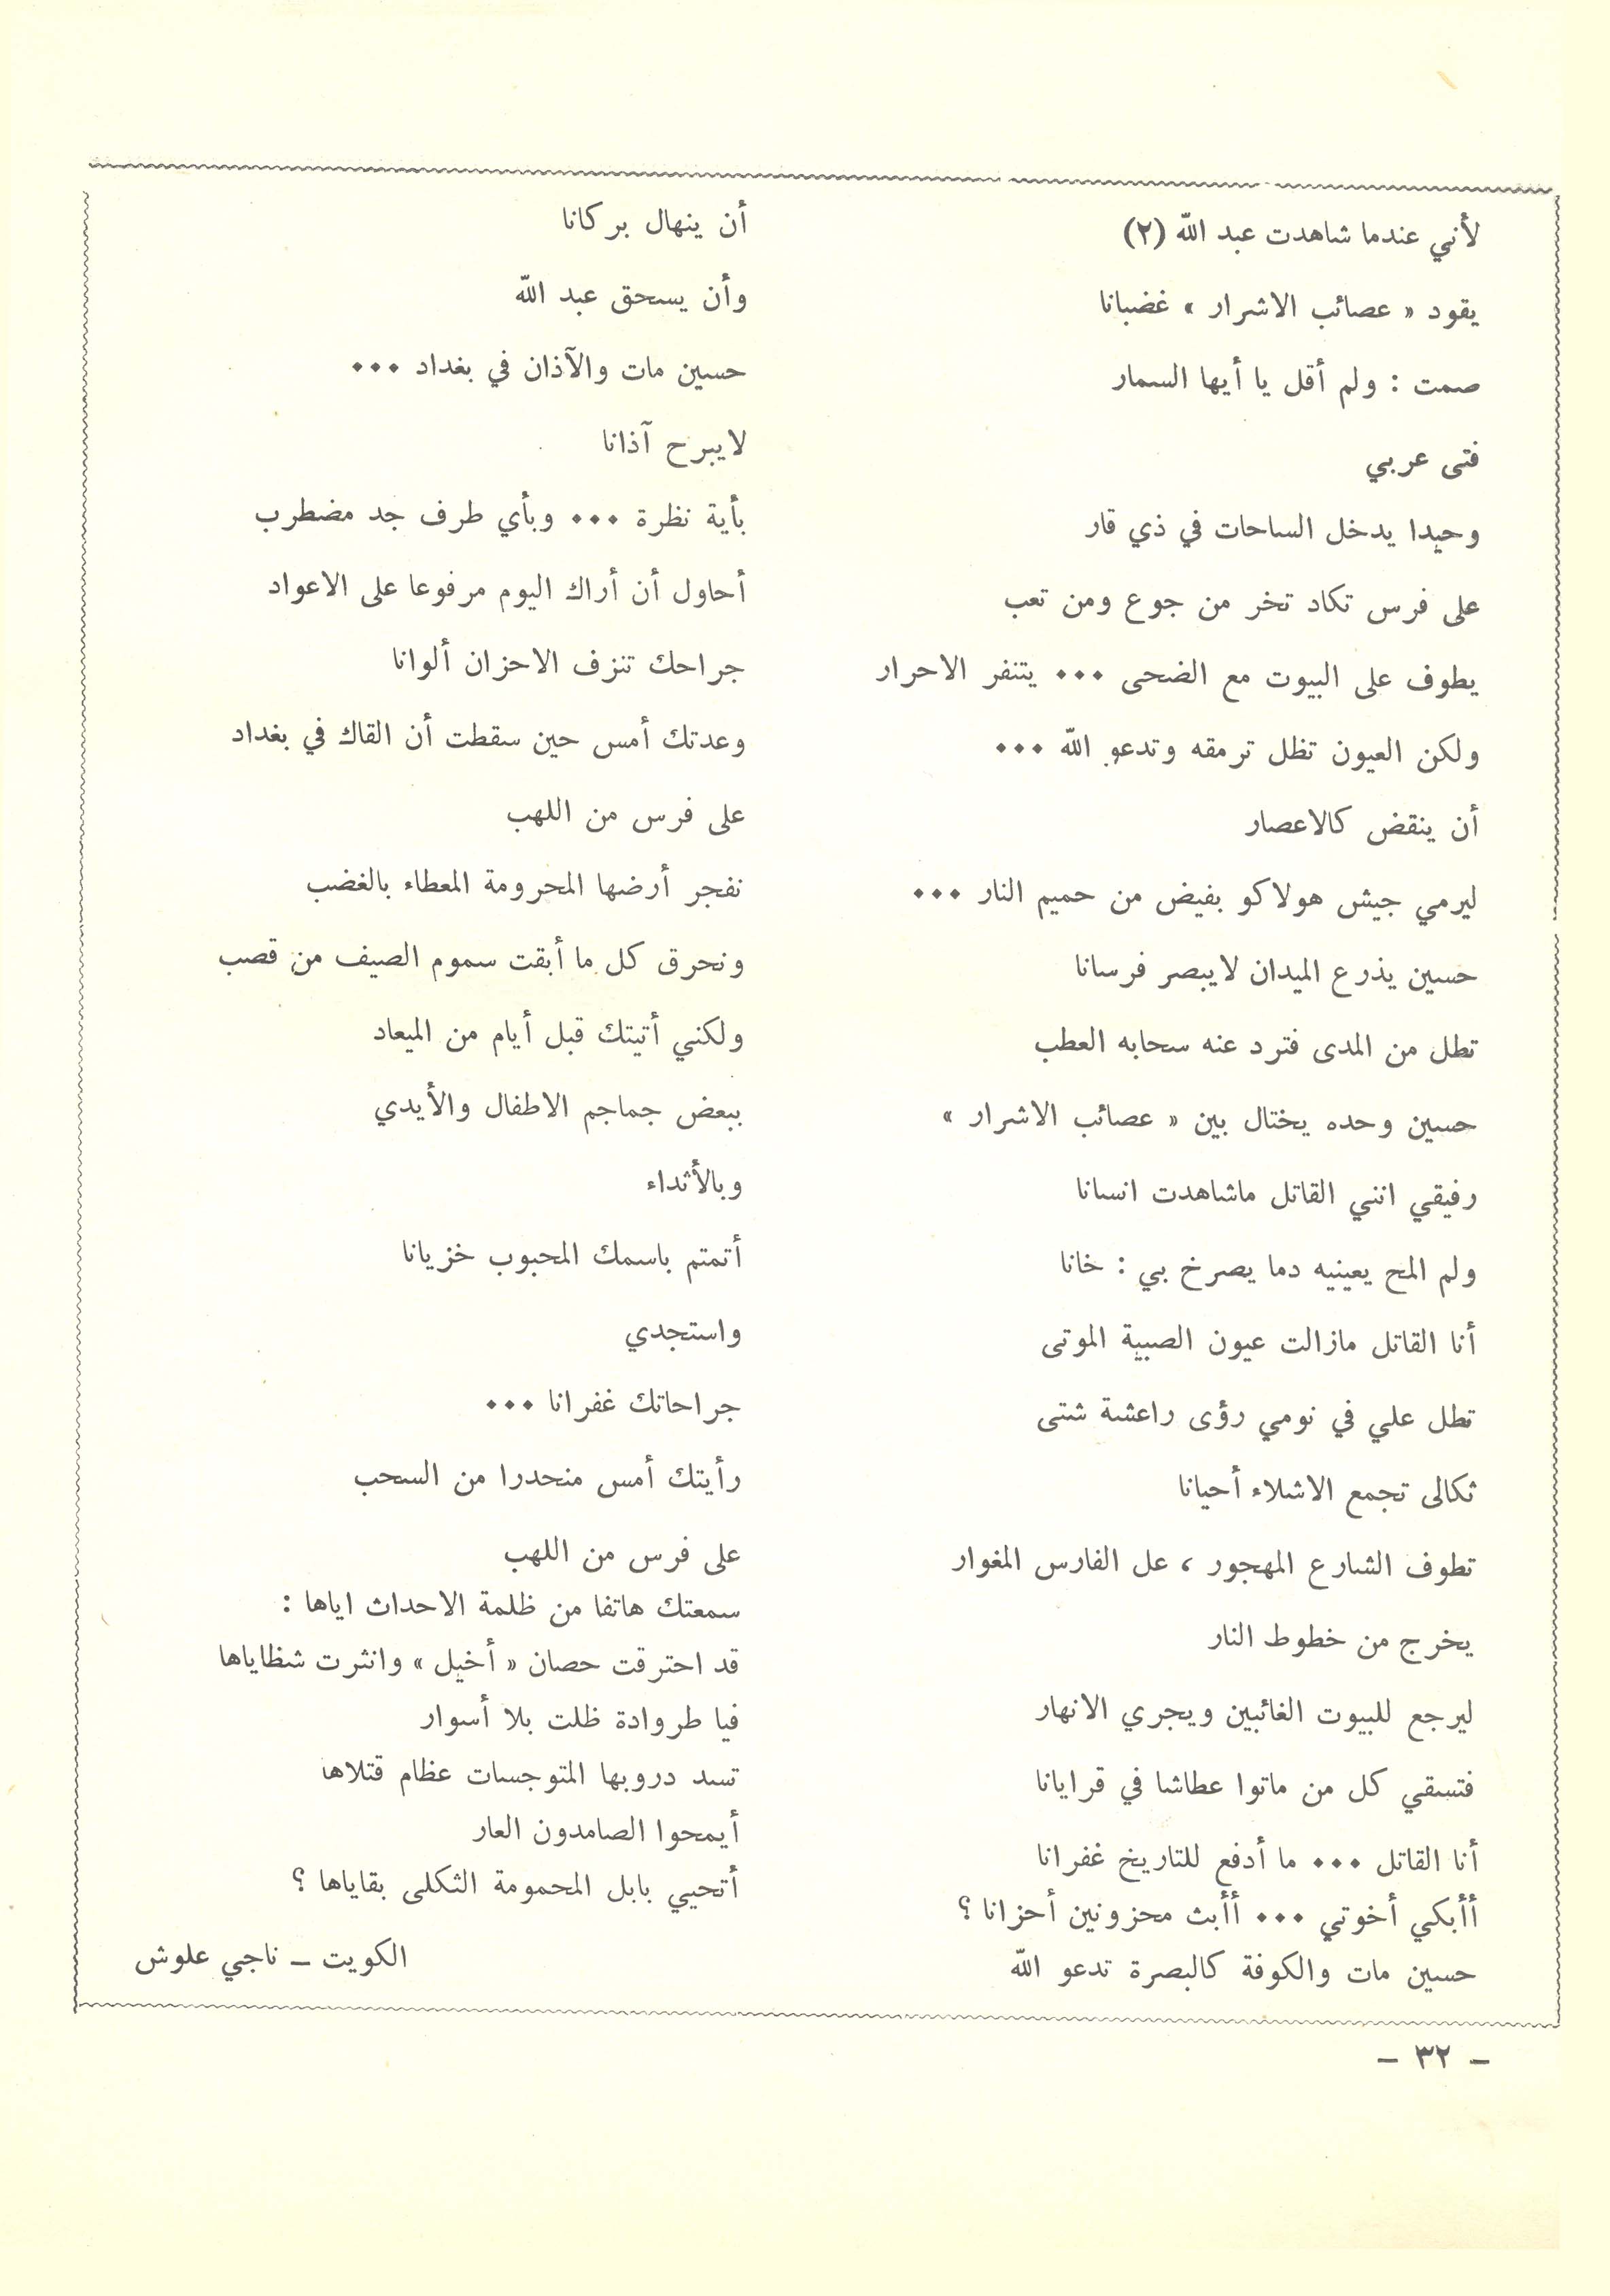 لأني عندما شاهدت عبد الله (٢)
يقود « عصائب الاشرار » غضبانا
صمت : ولم أقل يا أيها السمار
فتى عربي
وحيدا يدخل الساحات في ذي قار
على فرس تكاد تخر من جوع ومن تعب
يطوف على البيوت مع الضحى ••• يتنفر الاحرار
ولكن العيون تظل ترمقه وتدعو الله •••
أن ينقض كالاعصار
ليرمي جيش هولاكو بفيض من حميم النار •••
حسين يذرع الميدان لايبصر فرسانا
تطل من المدى فترد عنه سحابه العطب
حسين وحده يختال بين « عصائب الاشرار »
رفيقي انني القاتل ماشاهدت انسانا
ولم المح يعينيه دما يصرخ بي : خانا
أنا القاتل مازالت عيون الصبية الموتى
تطل علي في نومي رؤى راعشة شتى
ثكالى تجمع الاشلاء أحيانا
تطوف الشارع المهجور ، عل الفارس المغوار
يخرج من خطوط النار
ليرجع للبيوت الغائبين ويجري الانهار
فتسقي كل من ماتوا عطاشا في قرايانا
أنا القاتل ••• ما أدفع للتاريخ غفرانا
أأبكي أخوتي ••• أأبث محزونين أحزانا ؟
حسين مات والكوفة كالبصرة تدعو الله
أن ينهال بركانا
وأن يسحق عبد الله
حسين مات والآذان في بغداد •••
لايبرح آذانا
بأية نظرة ••• وبأي طرف جد مضطرب
أحاول أن أراك اليوم مرفوعا على الاعواد
جراحك تنزف الاحزان ألوانا
وعدتك أمس حين سقطت أن القاك في بغداد
على فرس من اللهب
نفجر أرضها المحرومة المعطاء بالغضب
ونحرق كل ما أبقت سموم الصيف من قصب
ولكني أتيتك قبل أيام من الميعاد
ببعض جماجم الاطفال والأيدي
وبالأثداء
أتمتم باسمك المحبوب خزيانا
واستجدي
جراحاتك غفرانا •••
رأيتك أمس منحدرا من السحب
على فرس من اللهب
سمعتك هاتفا من ظلمة الاحداث اياها :
قد احترقت حصان « أخيل » وانثرت شظاياها
فيا طروادة ظلت بلا أسوار
تسد دروبها المتوجسات عظام قتلاها
أيمحوا الصامدون العار
أتحيي بابل المحمومة الثكلى بقاياها ؟
الكويت – ناجي علوش
– ٣٢ –